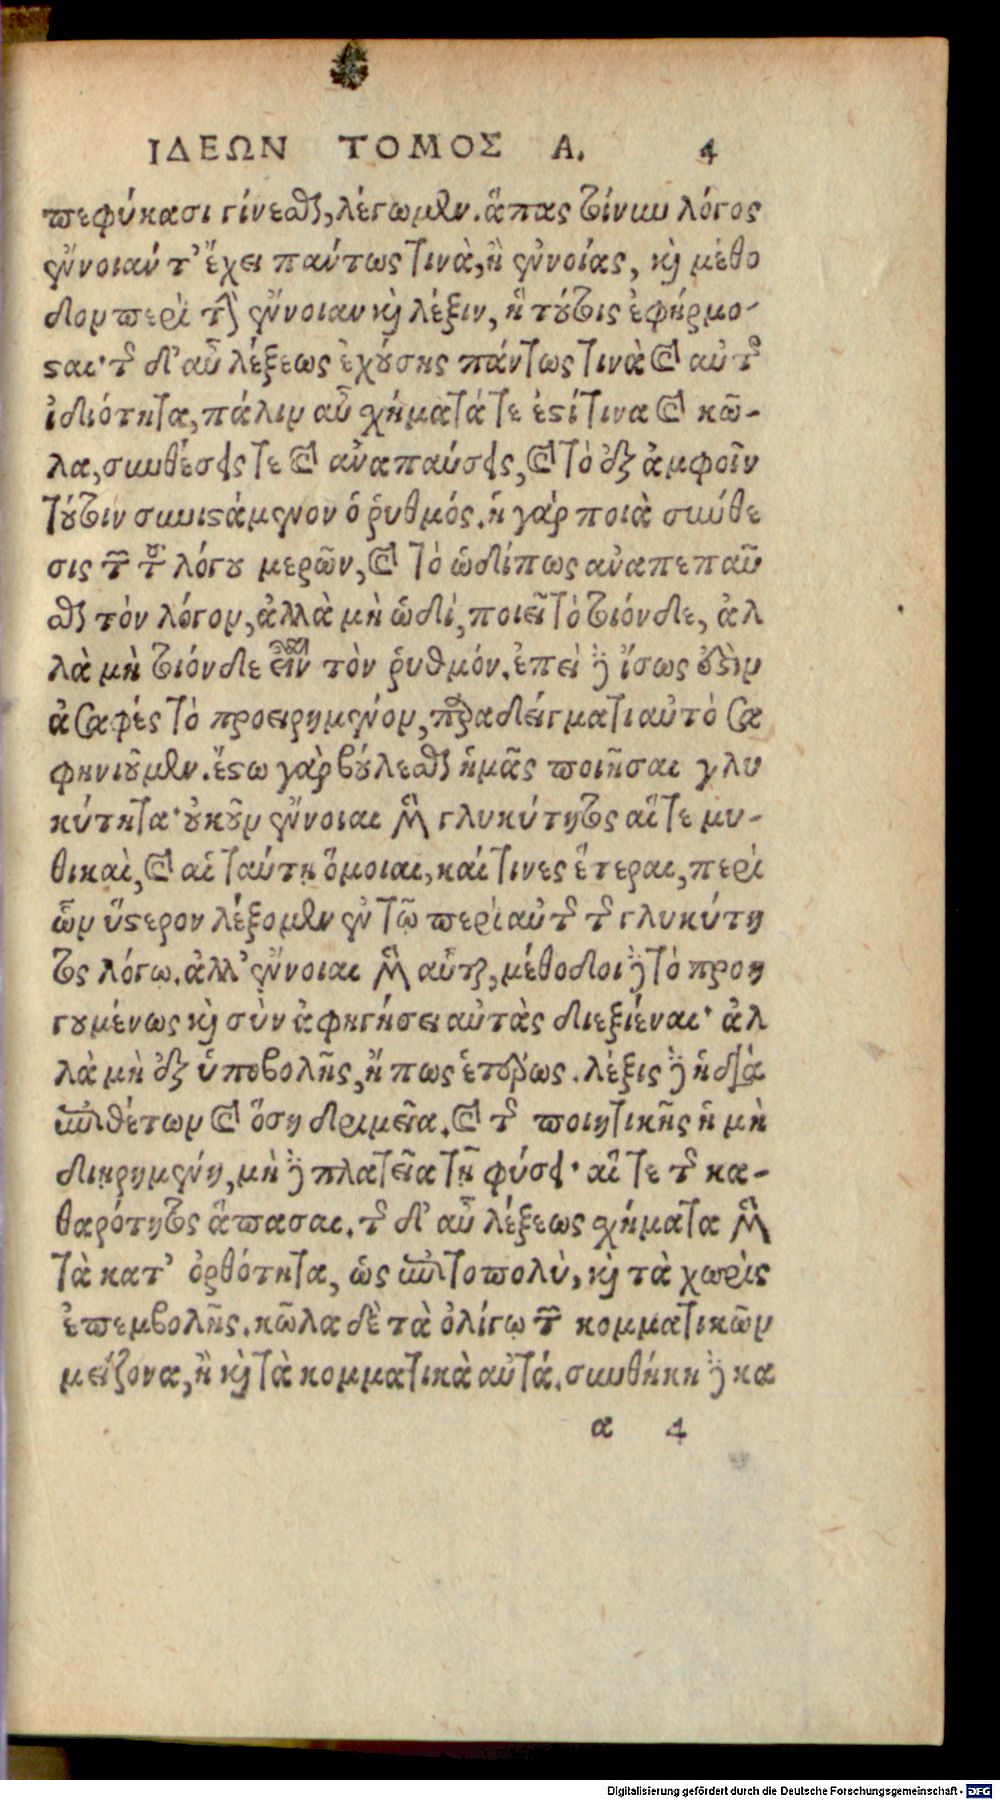 ΙΔΕΩΝ ΤΟΜΟΣ Α. 4
πεφύκασι γίνεσθαι, λέγωμεν. ἅπας τοίνυν λόγος
ἔννοιάν τ' ἔχει πάντως τινὰ, ἢ ἐννοίας, καὶ μέθο
δον περὶ τὴν ἔννοιαν καὶ λέξιν, ἣ τούτοις ἐφήρμο-
σαι· τῆς δ' αὖ λέξεως ἐχούσης πάντως τινὰ καὶ αὐτῆς
ἰδιότητα, πάλιν αὖ σχήματά τε ἐστί τινα καὶ κῶ-
λα, συνθέσεις τε καὶ ἀναπαύσεις, καὶ τὸ ἐξ ἀμφοῖν
τούτοιν συνιστάμενον ὁ ῥυθμός. ἡ γάρ ποιὰ σύνθε
σις τῶν τοῦ λόγου μερῶν, καὶ τὸ ὡδίπως ἀναπεπαῦ
σθαι τὸν λόγον, ἀλλὰ μὴ ὡδὶ, ποιεῖ τὸ τοιόνδε, ἀλ
λὰ μὴ τοιόνδε εἶναι τὸν ῥυθμόν. ἐπεὶ δὲ ἴσως οὐδὲν
ἀσαφές τὸ προειρημένον, παραδείγματι αὐτὸ σα
φηνιοῦμεν. ἔστω γὰρ βούλεσθαι ἡμᾶς ποιῆσαι γλυ
κύτητα· οὐκοῦν ἔννοιαι μὲν γλυκύτητος αἵ τε μυ-
θικαὶ, καὶ αἱ ταύτῃ ὅμοιαι, καί τινες ἕτεραι, περὶ
ὧν ὕστερον λέξομεν ἐν τῷ περὶ αὐτῆς τῆς γλυκύτη
τος λόγῳ. ἀλλ' ἔννοιαι μὲν αὗται, μέθοδοι δὲ τὸ προη
γουμένως καὶ σὺν ἀφηγήσει αὐτὰς διεξιέναι· ἀλ
λὰ μὴ ἐξ ὑποβολῆς, ἤ πως ἑτέρως. λέξις δὲ ἡ διὰ
ἐπιθέτων καὶ ὅση δριμεῖα. καὶ τῆς ποιητικῆς ἡ μὴ
διῃρημένη, μὴ δὲ πλατεῖα τῇ φύσει· αἵ τε τῆς κα-
θαρότητος ἅπασαι. τῆς δ' αὖ λέξεως σχήματα μὲν
τὰ κατ' ὀρθότητα, ὡς ἐπιτοπολὺ, καὶ τὰ χωρὶς
ἐπεμβολῆς. κῶλα δὲ τὰ ὀλίγῳ τῶν κομματικῶν
μείζονα, ἢ καὶ τὰ κομματικὰ αὐτά. συνθήκη δὲ κα
α 4
Digitalisierung gefördert durch die Deutsche Forschungsgemeinschaft - DFG